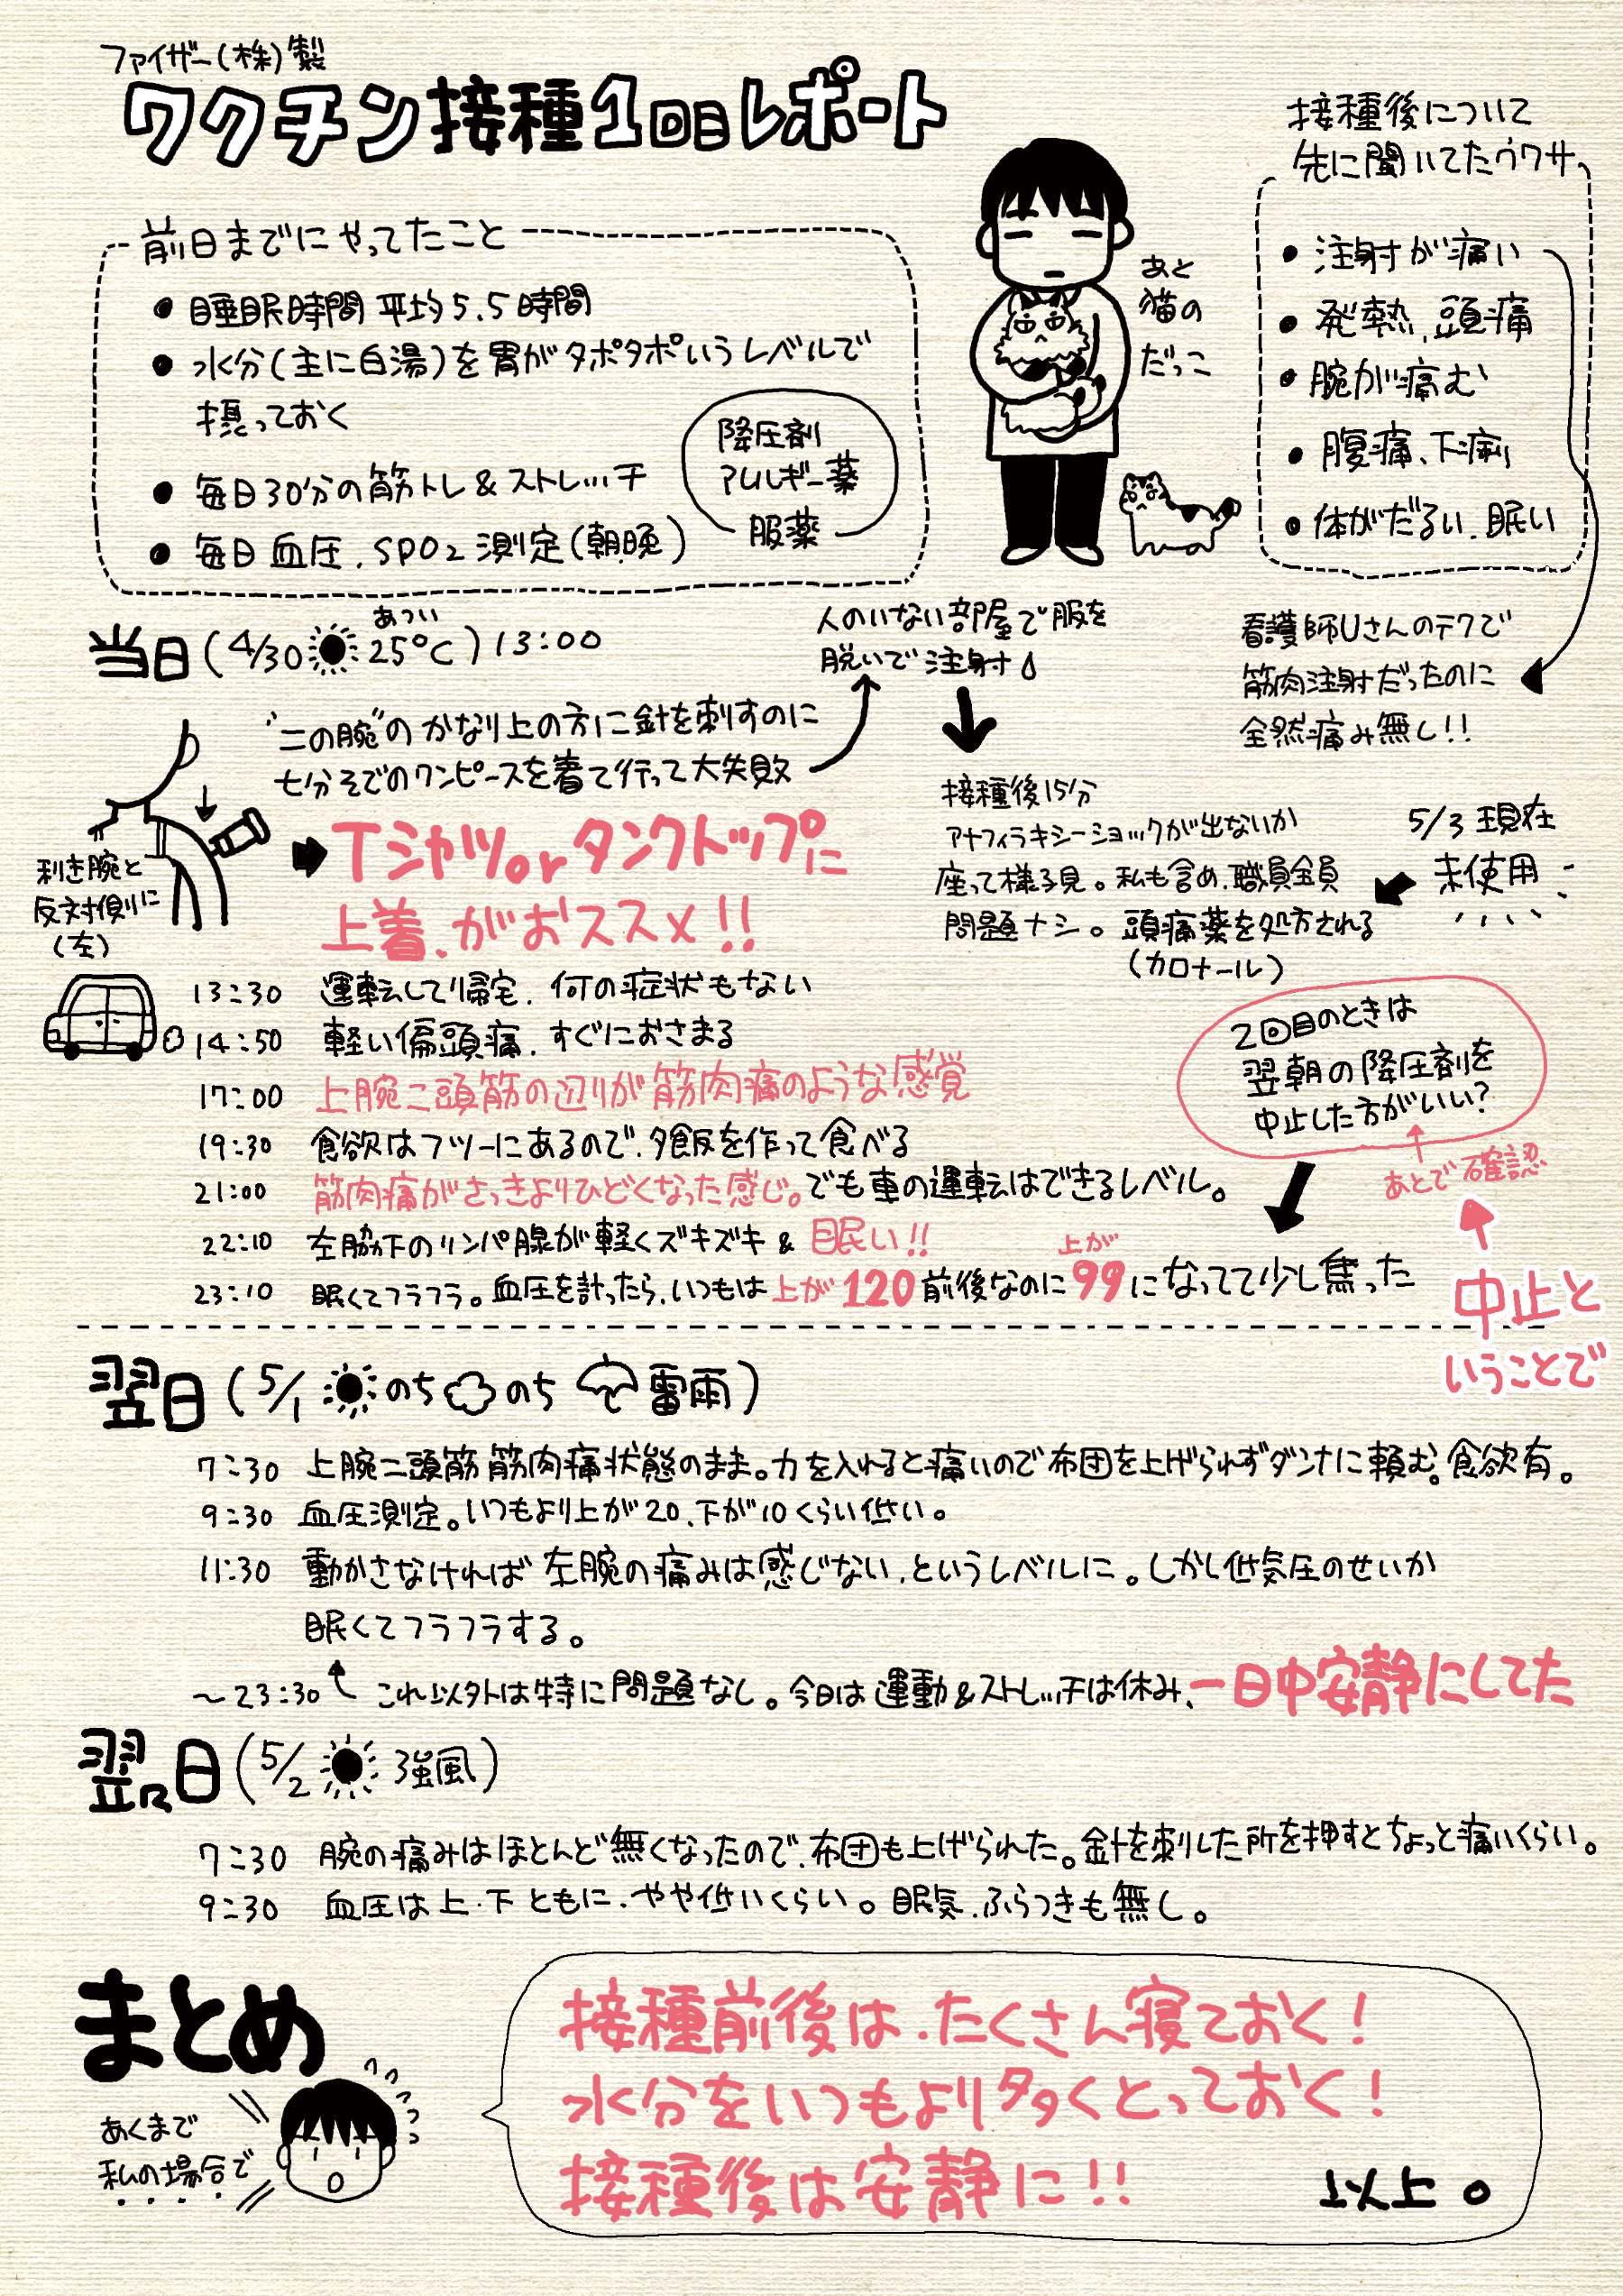 ファイザー(株)製
ワクチン接種1回目レポート
前日までにやってたこと
• 睡眠時間 平均5.5時間
• 水分(主に白湯)を胃がタポタポいうレベルで
摂っておく
• 毎日30分の筋トレ&ストレッチ
• 毎日血圧、SPO2測定(朝晩)
降圧剤
アレルギー薬
服薬
あと
猫の
だっこ
接種後について
先に聞いてたウワサ
• 注射が痛い
• 発熱、頭痛
• 腕が痛む
• 腹痛、下痢
• 体がだるい、眠い
看護師Uさんのテクで
筋肉注射だったのに
全然痛み無し!!
当日(4/30 25℃)13:00
あつい
"二の腕"のかなり上の方に針を刺すのに
七分そでのワンピースを着て行って大失敗
人のいない部屋で服を
脱いで注射
利き腕と
反対側に
(左)
Tシャツorタンクトップに
上着、がおススメ!!
接種後15分
アナフィラキシーショックが出ないか
座って様子見。私も含め、職員全員
問題ナシ。頭痛薬を処方される
(カロナール)
5/3現在
未使用
13:30 運転して帰宅、何の症状もない
14:50 軽い偏頭痛、すぐにおさまる
17:00 上腕二頭筋の辺りが筋肉痛のような感覚
19:30 食欲はフツーにあるので、夕飯を作って食べる
21:00 筋肉痛がさっきよりひどくなった感じ。でも車の運転はできるレベル。
22:10 左脇下のリンパ腺が軽くズキズキ & 眠い!!
23:10 眠くてフラフラ。血圧を計ったら、いつもは上が120前後なのに上が99になってて少し焦った
2回目のときは
翌朝の降圧剤を
中止した方がいい?
あとで確認
中止と
いうことで
翌日(5/1 のち のち 雷雨)
7:30 上腕二頭筋筋肉痛状態のまま。力を入れると痛いので布団を上げられずダンナに頼む。食欲有。
9:30 血圧測定。いつもより上が20、下が10くらい低い。
11:30 動かさなければ左腕の痛みは感じない、というレベルに。しかし低気圧のせいか
眠くてフラフラする。
〜23:30 これ以外は特に問題なし。今日は運動&ストレッチは休み、一日中安静にしてた
翌々日(5/2 強風)
7:30 腕の痛みはほとんど無くなったので、布団も上げられた。針を刺した所を押すとちょっと痛いくらい。
9:30 血圧は上・下ともに、やや低いくらい。眠気、ふらつきも無し。
まとめ
あくまで
私の場合で
接種前後は、たくさん寝ておく!
水分をいつもより多くとっておく!
接種後は安静に!!
以上。